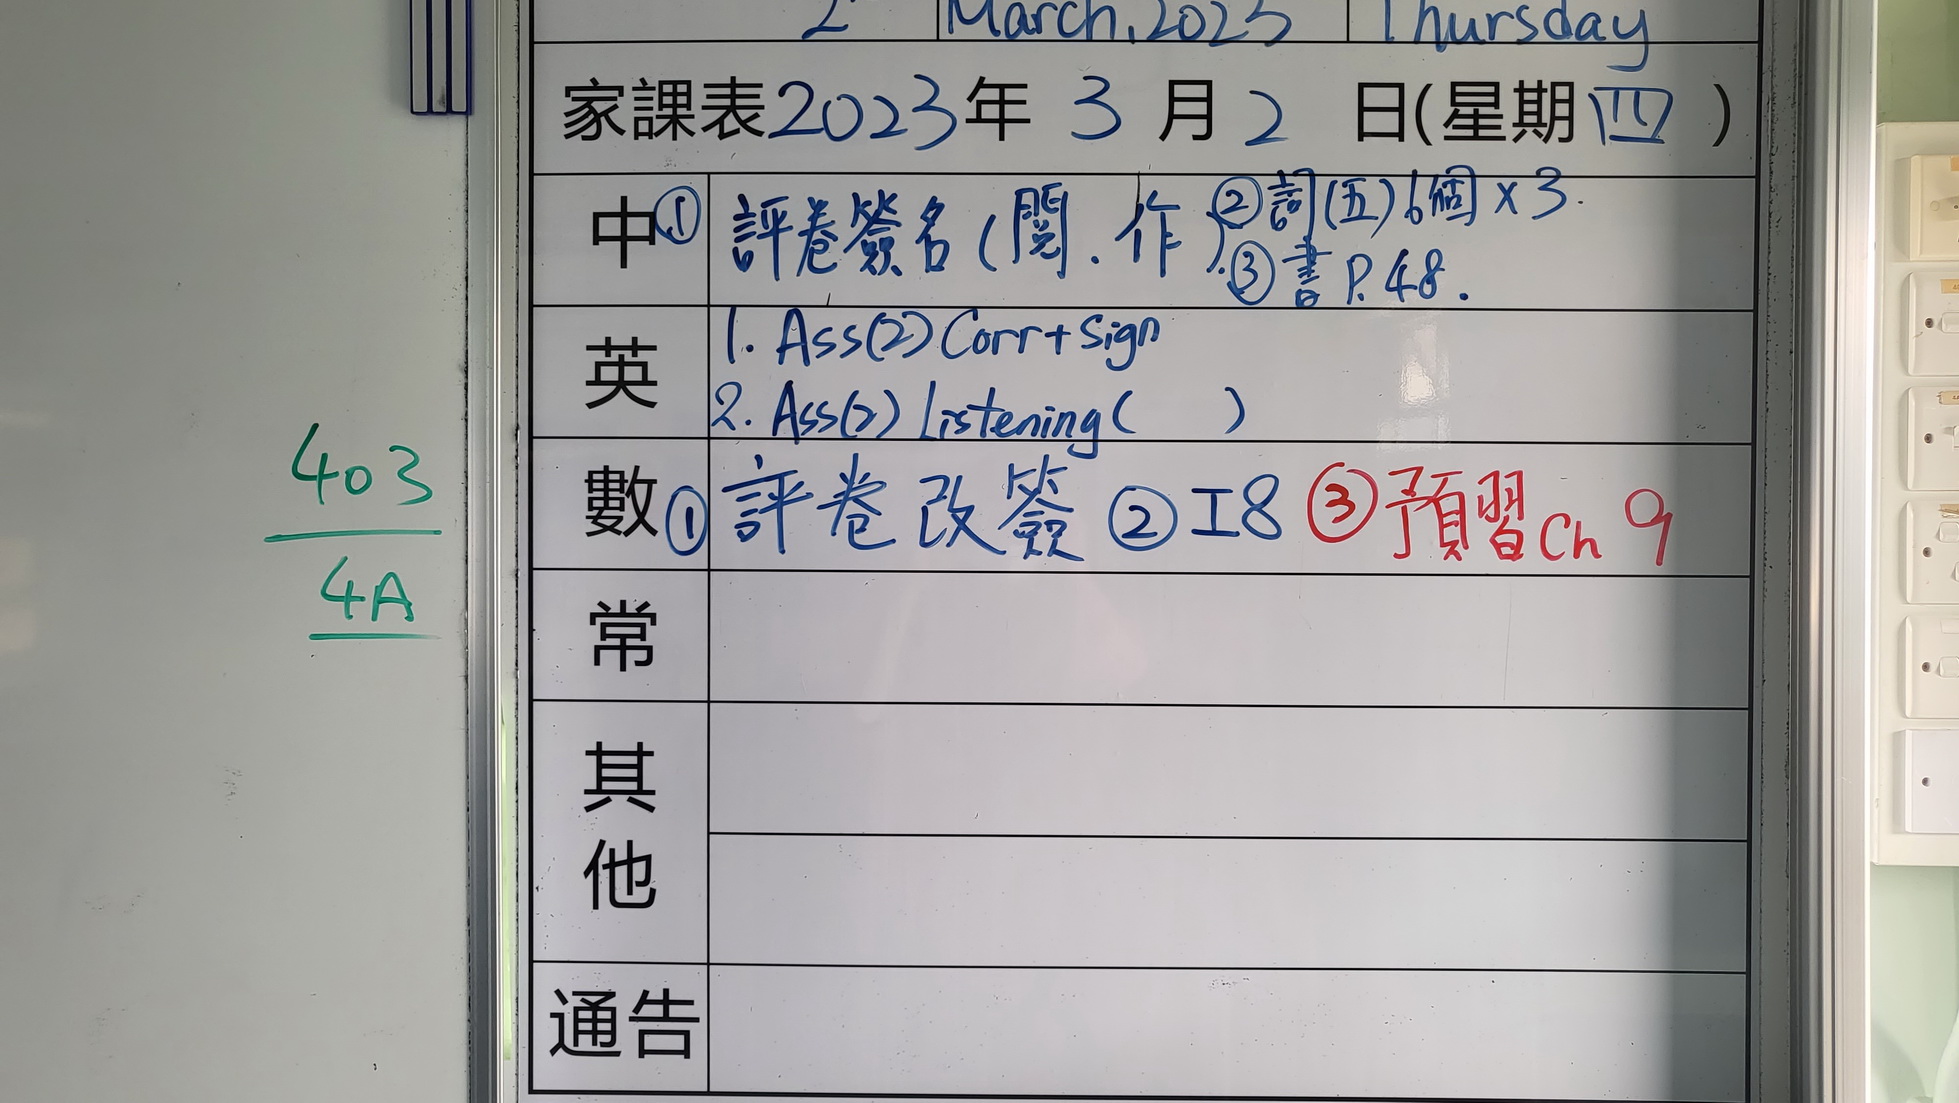 2 March, 2023 Thursday
家課表2023年 3 月 2 日(星期四)
中① 評卷簽名(閱.作). ②詞(五)6個×3.
③書 P.48.
英 1. Ass(2) Corr+Sign
2. Ass(2) Listening( )
數① 評卷改簽 ②I8 ③預習Ch 9
常
其他
通告
403
4A